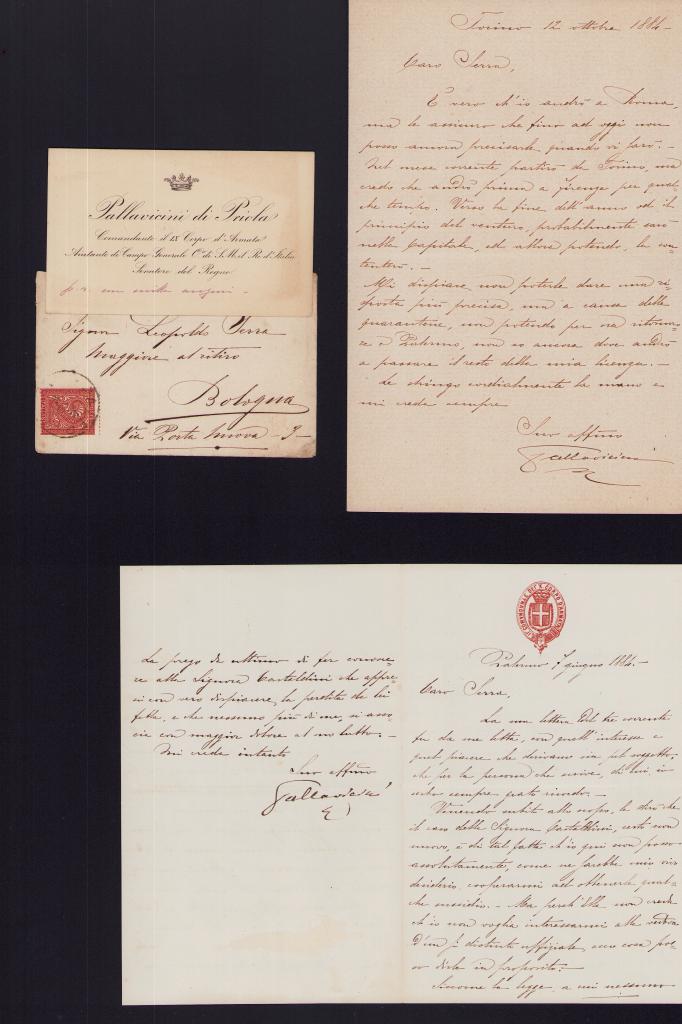 Torino 12 ottobre 1884 -
Caro Serra,
È vero ch'io andrò a Roma,
ma le assicuro che fino ad oggi non
posso ancora precisarle quando vi sarò. -
Nel mese corrente partirò da Torino, ma
credo che andrò prima a Firenze per qual-
che tempo. Verso la fine dell'anno od il
principio del venturo, probabilmente sarò
nella Capitale, ed allora potendo, la con-
tenterò. -
Mi dispiace non poterle dare una ri-
sposta più precisa, ma a causa delle
quarantene, non potendo per ora ritorna-
re a Palermo, non so ancora dove andrò
a passare il resto della mia licenza. -
Le stringo cordialmente la mano e
mi creda sempre
Suo affmo
Pallavicini
Pallavicini di Priola
Comandante il IX Corpo d'Armata
Aiutante di Campo Generale O. di S. M. il Re d'Italia
Senatore del Regno
p. r. con mille auguri -
Signor Leopoldo Serra
Maggiore al ritiro
Bologna
Via Porta Nuova - 3 -
La prego da ultimo di far conosce-
re alla Signora Castaldini che appre-
si con vero dispiacere, la perdita da lei
fatta, e che nessuno più di me, si asso-
cia con maggior dolore al suo lutto. -
Mi creda intanto
Suo affmo
Pallavicini
Palermo 7 giugno 1884. -
Caro Serra,
La sua lettera del tre corrente
fu da me letta, con quell'interesse e
quel piacere che derivano sia pel soggetto,
che per la persona che scrive, di cui, io
serbo sempre grato ricordo. -
Venendo subito allo scopo, le dirò che
il caso della Signora Castaldini, certo non
nuovo, è di tal fatta ch'io qui non posso
assolutamente, come ne sarebbe mio vivo
desiderio, cooperarmi ad ottenerle qual-
che sussidio. - Ma perch'Ella non creda
ch'io non voglia interessarmi alla vedova
d'un sì distinto uffiziale, ecco cosa pos-
so dirle in proposito: -
Siccome la legge, a cui nessuno